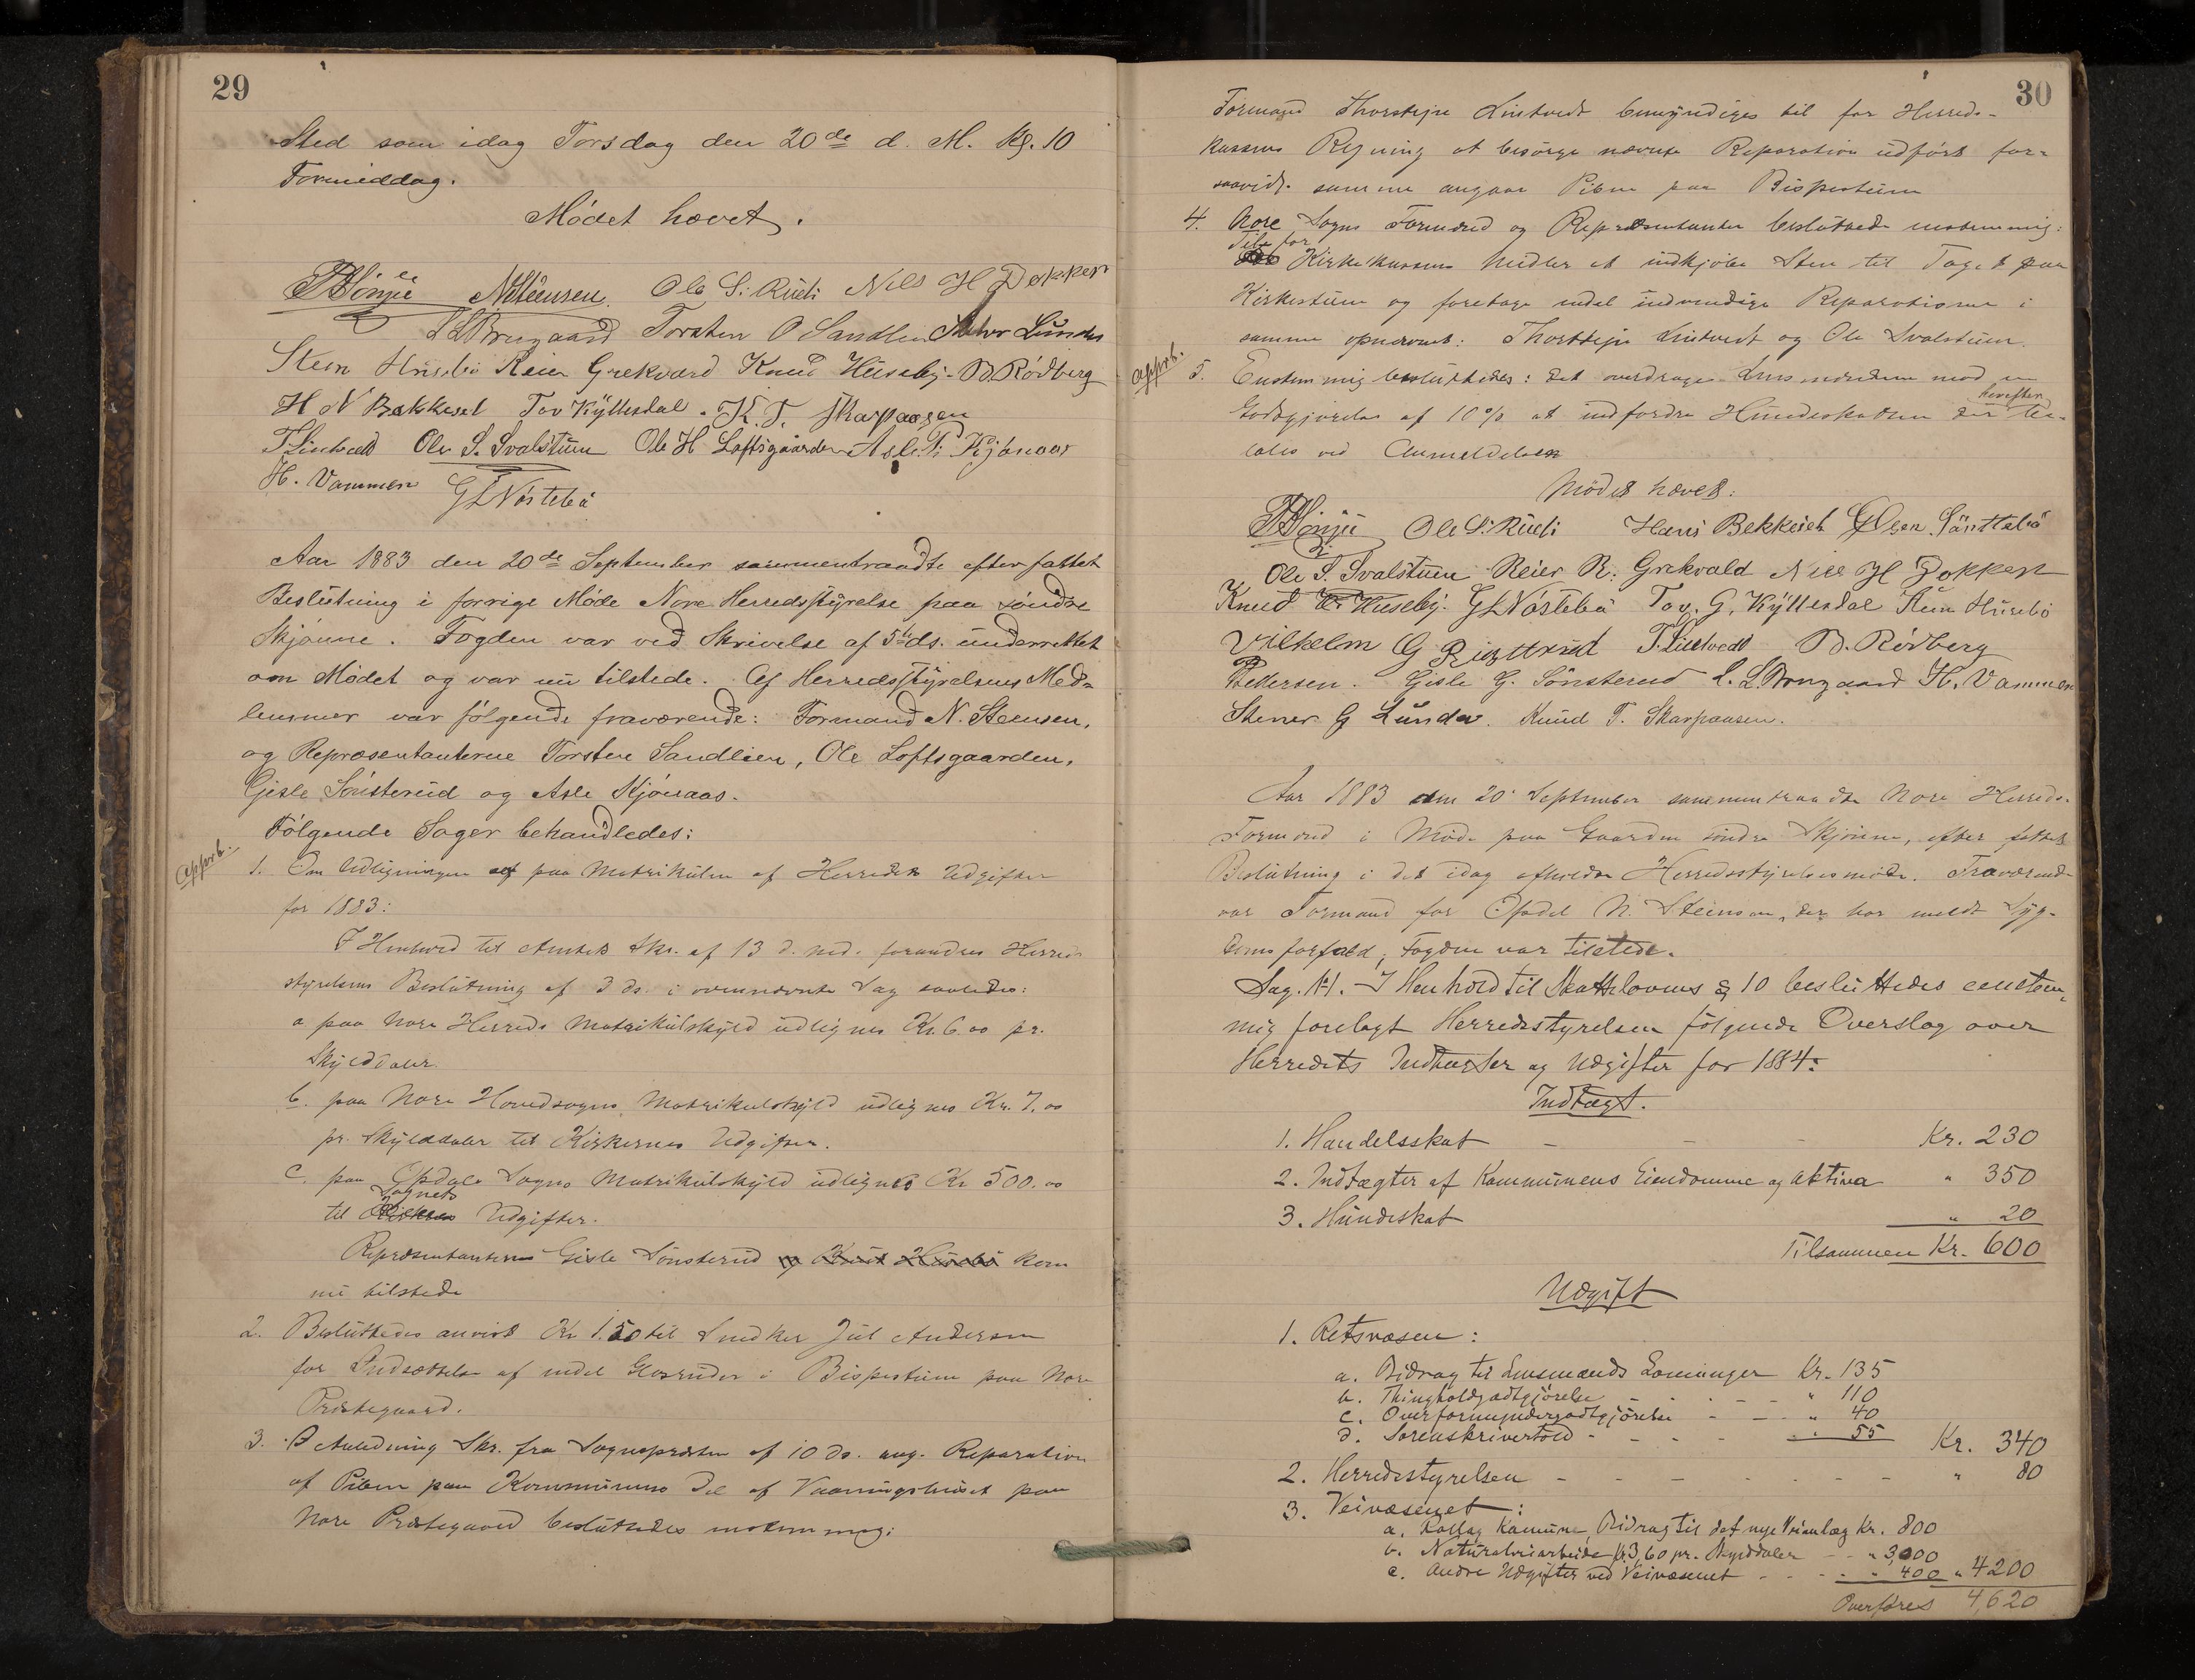 29
Sted som idag Torsdag den 20de d. M. Kl. 10
Formiddag.
Mødet hævet.
NSteensen. Ole S. Rudi Nils H Dokken
Torsten O Sandlien Lunden
Sten Husebö Reier Grekværd Knud Huseby. B. Rödberg
H N Bekkeset Tov Kyllesdal. K. T. Skarpaasen
T Lintvedt Ole S. Svalstuen Ole H Loftsgaarden Asle P. Kjönaas
H. Vammen GLNöstebö
Aar 1883 den 20de September sammentraadte efter fattet
Beslutning i forrige Møde Nore Herredsstyrelse paa søndre
Skjønne. Fogden var ved Skrivelse af 5te ds. underrettet
om Mødet og var nu tilstede. Af Herredsstyrelsens Med-
lemmer var følgende fraværende: Formand N. Steensen,
og Repræsentanterne Torsten Sandlien, Ole Loftsgaarden,
Gisle Sønsterud og Asle Kjønaas.
Følgende Sager behandledes:
Apprb.
1. Om Udligningen af paa Matrikulen af Herredets Udgifter
for 1883:
I Henhold til Amtets Skr. af 13 d. md. forandres Herreds
styrelsens Beslutning af 3 ds. i ovennævnte Sag saaledes:
a paa Nore Herreds Matrikulskyld udlignes Kr. 6.00 pr.
Skylddaler.
b. paa Nore Hovedsogns Matrikulskyld udlignes Kr. 7.00
pr. Skylddaler til Kirkernes Udgifter.
c. paa Opdals Sogns Matrikulskyld udlignes Kr 500.00
Sognets
til Udgifter.
Repræsentanterne Gisle Sønsterud og Knut Husebö kom
nu tilstede
2. Besluttedes anvist Kr 1.50 til Snedker Jul Andersen
for Indsættelse af endel Glasruder i Bispestuen paa Nore
Præstegaard.
3. I Anledning Skr. fra Sognepræsten af 10 ds. ang. Reparation
af Piben paa Kommunens Del af Vaaningshuset paa
Nore Præstegaard besluttedes enstemmig:
30
Formand Thorstejn Lintvedt bemyndiges til for Herreds-
kassens Regning at besørge nævnte Reparation udført for-
saavidt samme angaar Piben paa Bispestuen
4. Nore Sogns Formænd og Repræsentanter besluttede enstemmig:
for
Kirkekassens Midler at indkjøbe Sten til Taget paa
Kirkestuen og foretage endel indvendige Reparationer i
samme opnævnt: Thorstejn Lintvedt og Ole Svalstuen.
Apprb.
5. Enstemmig besluttedes: det overdrages Lensmændene mod en
Godtgjørelse af 10% at indfordre Hundeskatten der be-
herefter
tales ved Anmeldelsen
Mødet hævet:
Ole S. Rudi Hans Bekkeset
Ole S. Svalstuen Reier R. Grekvald Nils H Dokken
Knud Huseby. GLNöstebö Tov. G. Kyllesdal Sten Husebö
Vilhelm G T. Lintvedt B. Rödberg
Pettersen. Gisle G. Sönsterud H. Vammen
Stener G Lunda. Knud T. Skarpaasen.
Aar 1883 den 20 September sammentraadte Nore Herreds-
Formænd i Møde paa Gaarden søndre Skjønne, efter fattet
Beslutning i det idag afholdte Herredsstyrelsesmøde. Fraværende
var Formand for Opdal N. Steensen, der har meldt Syg-
doms forfald; Fogden var tilstede.
Sag. N1. I Henhold til Skattelovens § 10 besluttedes eenstem-
mig forelagt Herredsstyrelsen følgende Overslag over
Herredets Indtægter og Udgifter for 1884:
Indtægt.
1. Handelsskat - - - Kr. 230
2. Indtægter af Kommunens Eiendomme og Aktiva " 350
3. Hundeskat " 20
Tilsammen Kr. 600
Udgift
1. Retsvæsen:
a. Bidrag til Lensmænds Lønninger Kr. 135
b. Thingholdgodtgjørelse - - - " 110
c. Overformyndergodtgjørelse - - " 40
d. Sorenskrivertold - - - - " 55 Kr. 340
2. Herredsstyrelsen - - - - - - - " 80
3. Veivæsenet:
a. Rollag Komune, Bidrag til det nye Veianlæg Kr. 800
b. Naturalveiarbeide Kr 3,60 pr. Skylddaler - - " 3,000
c. Andre Udgifter ved Veivæsenet - - - - " 400 " 4200
Overføres 4,620